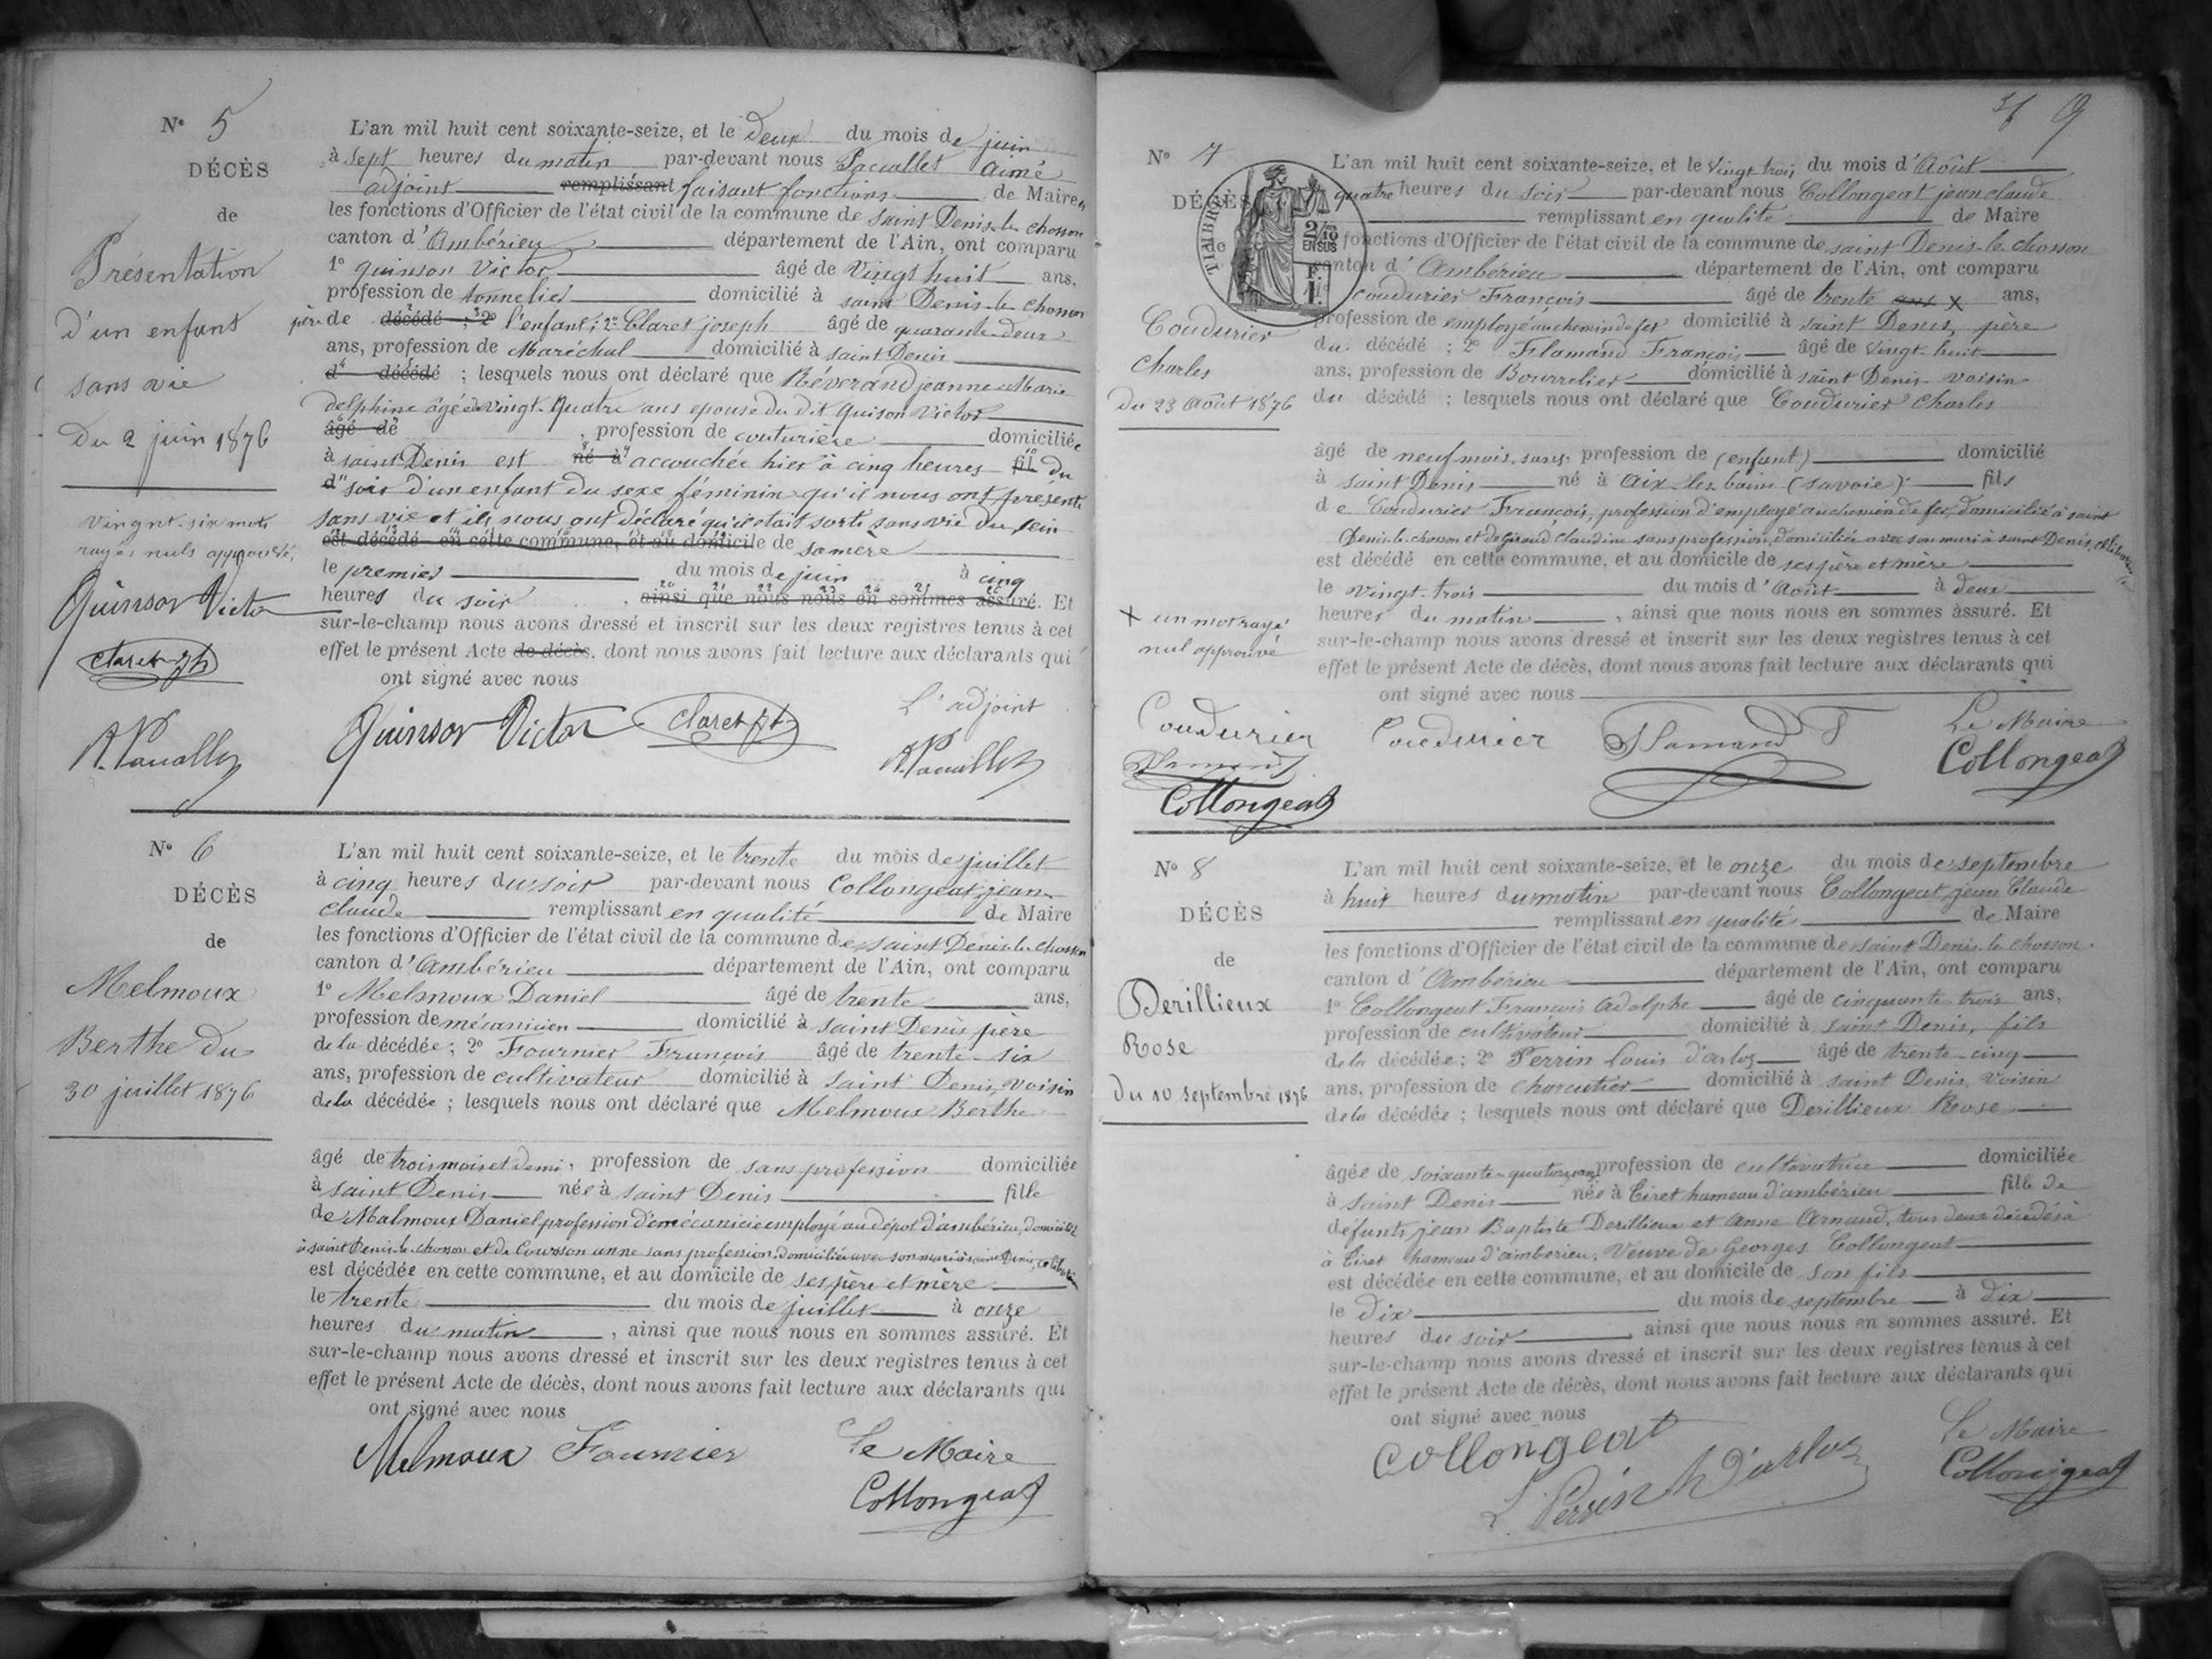 N° 5
DÉCÈS
de
Présentation
d'un enfant
sans vie
Du 2 juin 1876
vingnt-six mots
rayés nuls approuvé,
Quinson Victor
Claret Jh
L'an mil huit cent soixante-seize, et le deux du mois de juin
à sept heures du matin par-devant nous Pacuallet aimé
adjoint remplissant faisant fonctions de Maire
les fonctions d'Officier de l'état civil de la commune de saint Denis-le-chosson
canton d'Ambérieu département de l'Ain, ont comparu
1° quinson Victor âgé de Vingt huit ans,
profession de tonnelier domicilié à saint Denis-le-chosson
père de décédé ; 2° l'enfant ; 2° Claret joseph âgé de quarante-deux
ans, profession de Maréchal domicilié à saint Denis
d décédé ; lesquels nous ont déclaré que Réverand jeanne Marie
delphine âgée de vingt-quatre ans epouse du dit Quison Victor
âgé de , profession de couturière domiciliée
à saint Denis est né à accouchée hier à cinq heures fil du
d soir d'un enfant du sexe féminin qu'il nous ont présenté
sans vie et ils nous ont déclaré qu'il était sorti sans vie du sein
est décédé en cette commune, et au domicile de sa mère
le premier du mois de juin à cinq
heures du soir , ainsi que nous nous en sommes assuré. Et
sur-le-champ nous avons dressé et inscrit sur les deux registres tenus à cet
effet le présent Acte de décès, dont nous avons fait lecture aux déclarants qui
ont signé avec nous
Quinson Victor Claret Jh L'adjoint
N° 6
DÉCÈS
de
Melmoux
Berthe du
30 juillet 1876
L'an mil huit cent soixante-seize, et le trente du mois de juillet
à cinq heures du soir par-devant nous Collongeat jean
claude remplissant en qualité de Maire
les fonctions d'Officier de l'état civil de la commune de saint Denis-le-chosson
canton d'Ambérieu département de l'Ain, ont comparu
1° Melmoux Daniel âgé de trente ans,
profession de mécanicien domicilié à saint Denis père
de la décédée ; 2° Fournier François âgé de trente-six
ans, profession de cultivateur domicilié à saint Denis, voisin
de la décédée ; lesquels nous ont déclaré que Melmoux Berthe
âgé de trois mois et demi, profession de sans profession domiciliée
à saint Denis née à saint Denis fille
de Malmoux Daniel profession d'emécanicie employé au dépot d'ambérieu, domicilié
à saint Denis-le-chosson et de Cousson anne sans profession, domiciliée avec son mari à saint Denis, célibataire
est décédée en cette commune, et au domicile de ses père et mère
le trente du mois de juillet à onze
heures du matin , ainsi que nous nous en sommes assuré. Et
sur-le-champ nous avons dressé et inscrit sur les deux registres tenus à cet
effet le présent Acte de décès, dont nous avons fait lecture aux déclarants qui
ont signé avec nous
Melmoux Fournier Le Maire
Collongeat
9
N° 7
DÉCÈS
de
TIMBRE
2/10
EN SUS
Coudurier
Charles
Du 23 Août 1876
X un mot rayé
nul approuvé
Coudurier
Flamand
Collongeat
L'an mil huit cent soixante-seize, et le Vingt trois du mois d'Août
quatre heures du soir par-devant nous Collongeat jean claude
remplissant en qualité de Maire
fonctions d'Officier de l'état civil de la commune de saint Denis-le-chosson
canton d'Ambérieu département de l'Ain, ont comparu
coudurier François âgé de trente ans X ans,
profession de employé au chemin de fer domicilié à saint Denis, père
du décédé ; 2° Flamand François âgé de vingt-huit
ans, profession de Bourrelier domicilié à saint Denis voisin
du décédé ; lesquels nous ont déclaré que Coudurier Charles
âgé de neuf mois, sans profession de (enfant) domicilié
à saint Denis né à Aix les bains (savoie) fils
de Coudurier François, profession d'employé au chemin de fer, domicilié à saint
Denis-le-chosson et de Giraud Claudine sans profession, domiciliée avec son mari à saint Denis, célibataire
est décédé en cette commune, et au domicile de ses père et mère
le vingt-trois du mois d'Août à deux
heures du matin , ainsi que nous nous en sommes assuré. Et
sur-le-champ nous avons dressé et inscrit sur les deux registres tenus à cet
effet le présent Acte de décès, dont nous avons fait lecture aux déclarants qui
ont signé avec nous
Coudurier Flamand F Le Maire
Collongeat
N° 8
DÉCÈS
de
Derillieux
Rose
du 10 septembre 1876
L'an mil huit cent soixante-seize, et le onze du mois de septembre
à huit heures du matin par-devant nous Collongeat jean Claude
remplissant en qualité de Maire
les fonctions d'Officier de l'état civil de la commune de saint Denis-le-chosson
canton d'Ambérieu département de l'Ain, ont comparu
1° Collongeat François Adolphe âgé de cinquante trois ans,
profession de cultivateur domicilié à saint Denis, fils
de la décédée ; 2° Perrin Louis d'arloz âgé de trente-cinq
ans, profession de charcutier domicilié à saint Denis, voisin
de la décédée ; lesquels nous ont déclaré que Derillieux Rose
âgée de soixante-quatorze ans profession de cultivatrice domiciliée
à saint Denis née à Tiret hameau d'ambérieu fille de
défunts jean Baptiste Derillieux et Anne Arnaud, tous deux décédés à
à Tiret hameau d'amberieu, Veuve de Georges Collongeat
est décédée en cette commune, et au domicile de son fils
le Dix du mois de septembre à dix
heures du soir , ainsi que nous nous en sommes assuré. Et
sur-le-champ nous avons dressé et inscrit sur les deux registres tenus à cet
effet le présent Acte de décès, dont nous avons fait lecture aux déclarants qui
ont signé avec nous
Collongeat Le Maire
L. Perrin D'arloz Collongeat